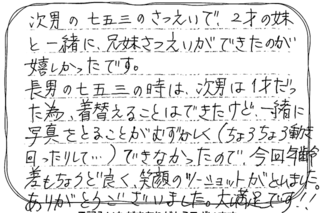 次男の七五三のさつえいで、2才の妹
と一緒に、兄妹さつえいができたのが
嬉しかったです。
長男の七五三の時は、次男は1才だっ
た為、着替えることはできたけど、一緒に
写真をとることがむずかしく(ちょろちょろ動き
回ったりして…)できなかったので、今回年齢
差もちょうど良く、笑顔のツーショットがとれました。
ありがとうございました。大満足です!!